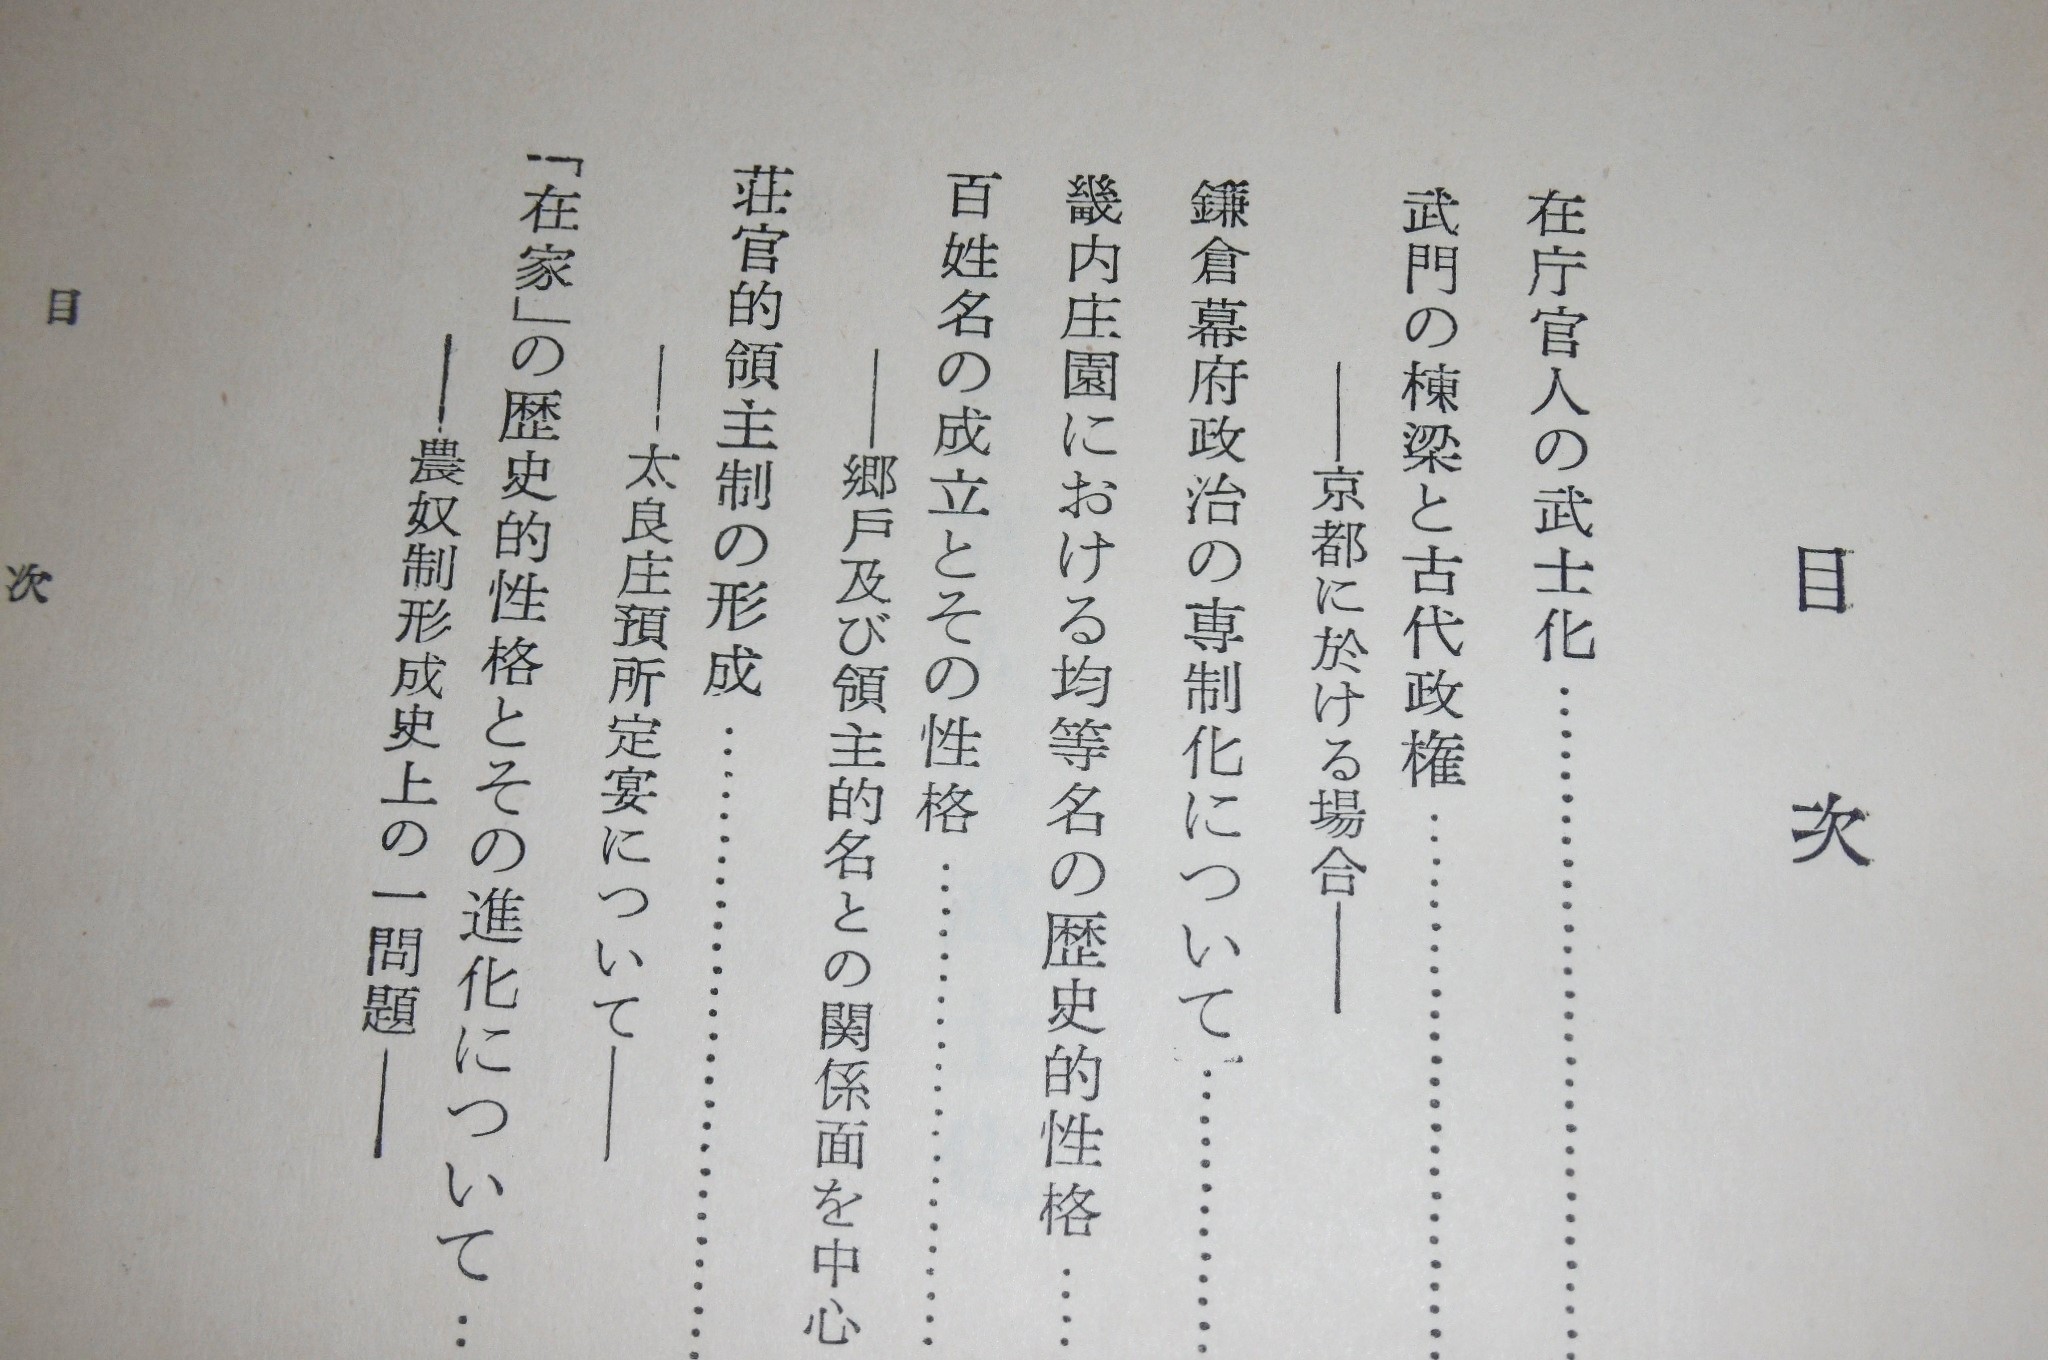 目次
在庁官人の武士化…………………………
武門の棟梁と古代政権…………………………
――京都に於ける場合――
鎌倉幕府政治の専制化について……………
畿内庄園における均等名の歴史的性格……
百姓名の成立とその性格……………………
――郷戸及び領主的名との関係面を中心
荘官的領主制の形成…………………………
――太良庄預所定宴について――
「在家」の歴史的性格とその進化について…
――農奴制形成史上の一問題――
目次